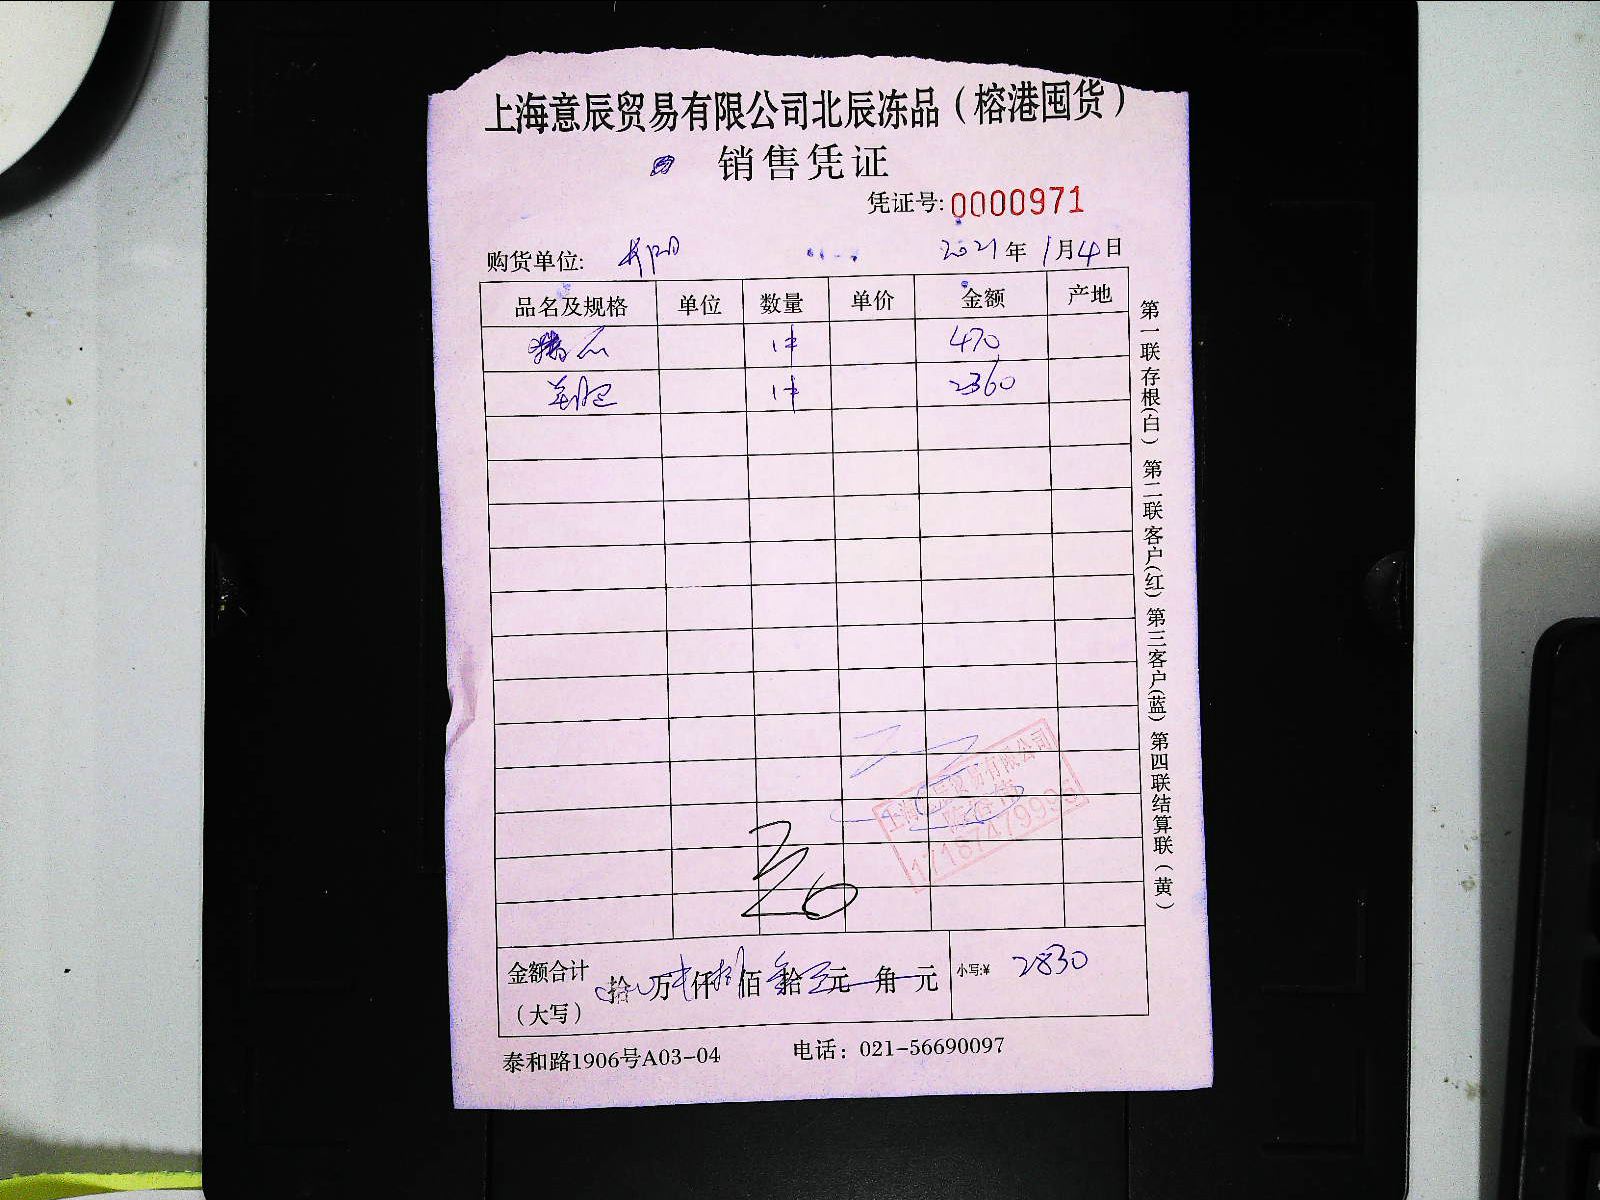 上海意辰贸易有限公司北辰冻品（榕港囤货）
销售凭证
凭证号:0000971
购货单位: 2021年1月4日
品名及规格 单位 数量 单价 金额 产地
1件 470
1件 2360
第一联存根(白) 第二联客户(红) 第三客户(蓝) 第四联结算联(黄)
上海意辰贸易有限公司
金额合计 拾 万 仟 佰 拾 元 角 元 小写:¥ 2830
（大写）
泰和路1906号A03-04 电话：021-56690097